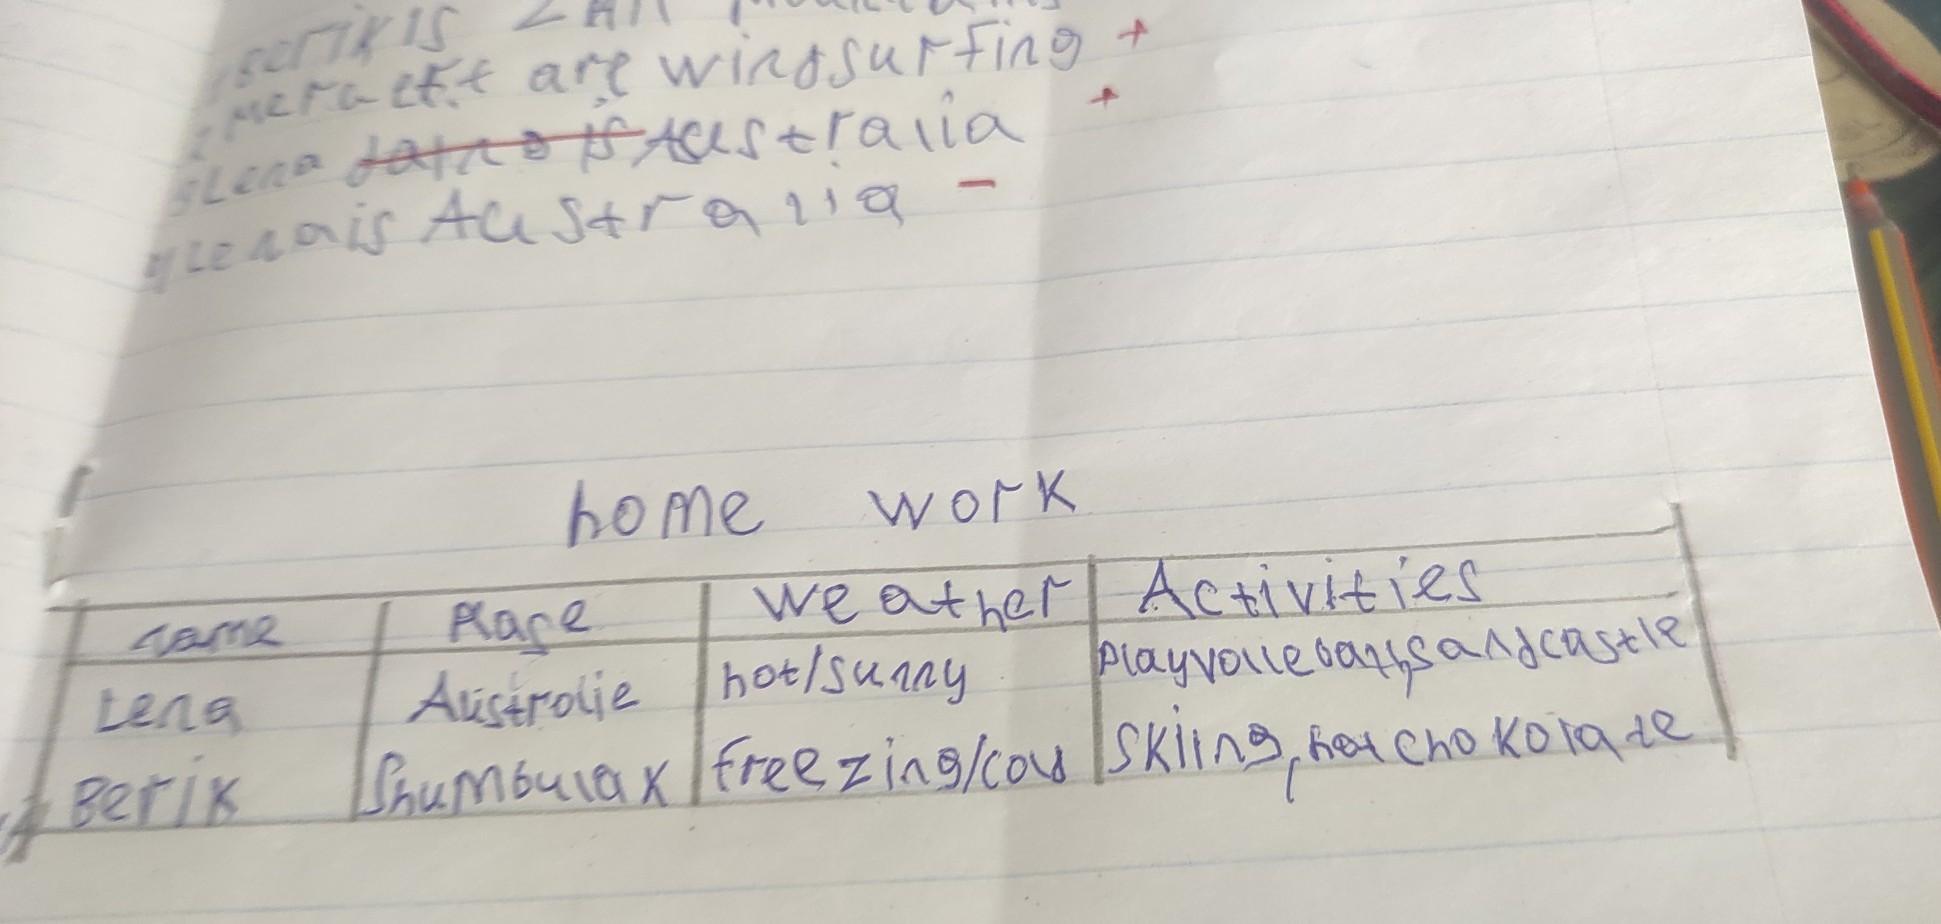 are windsurfing +
Lena Australia +
Lena is Australia −
home work
name Plase Weather Activities
Lena Australie hot/sunny playvolleball, sandcastle
Berik Shumbulax freezing/cold skiing, hot chokolate